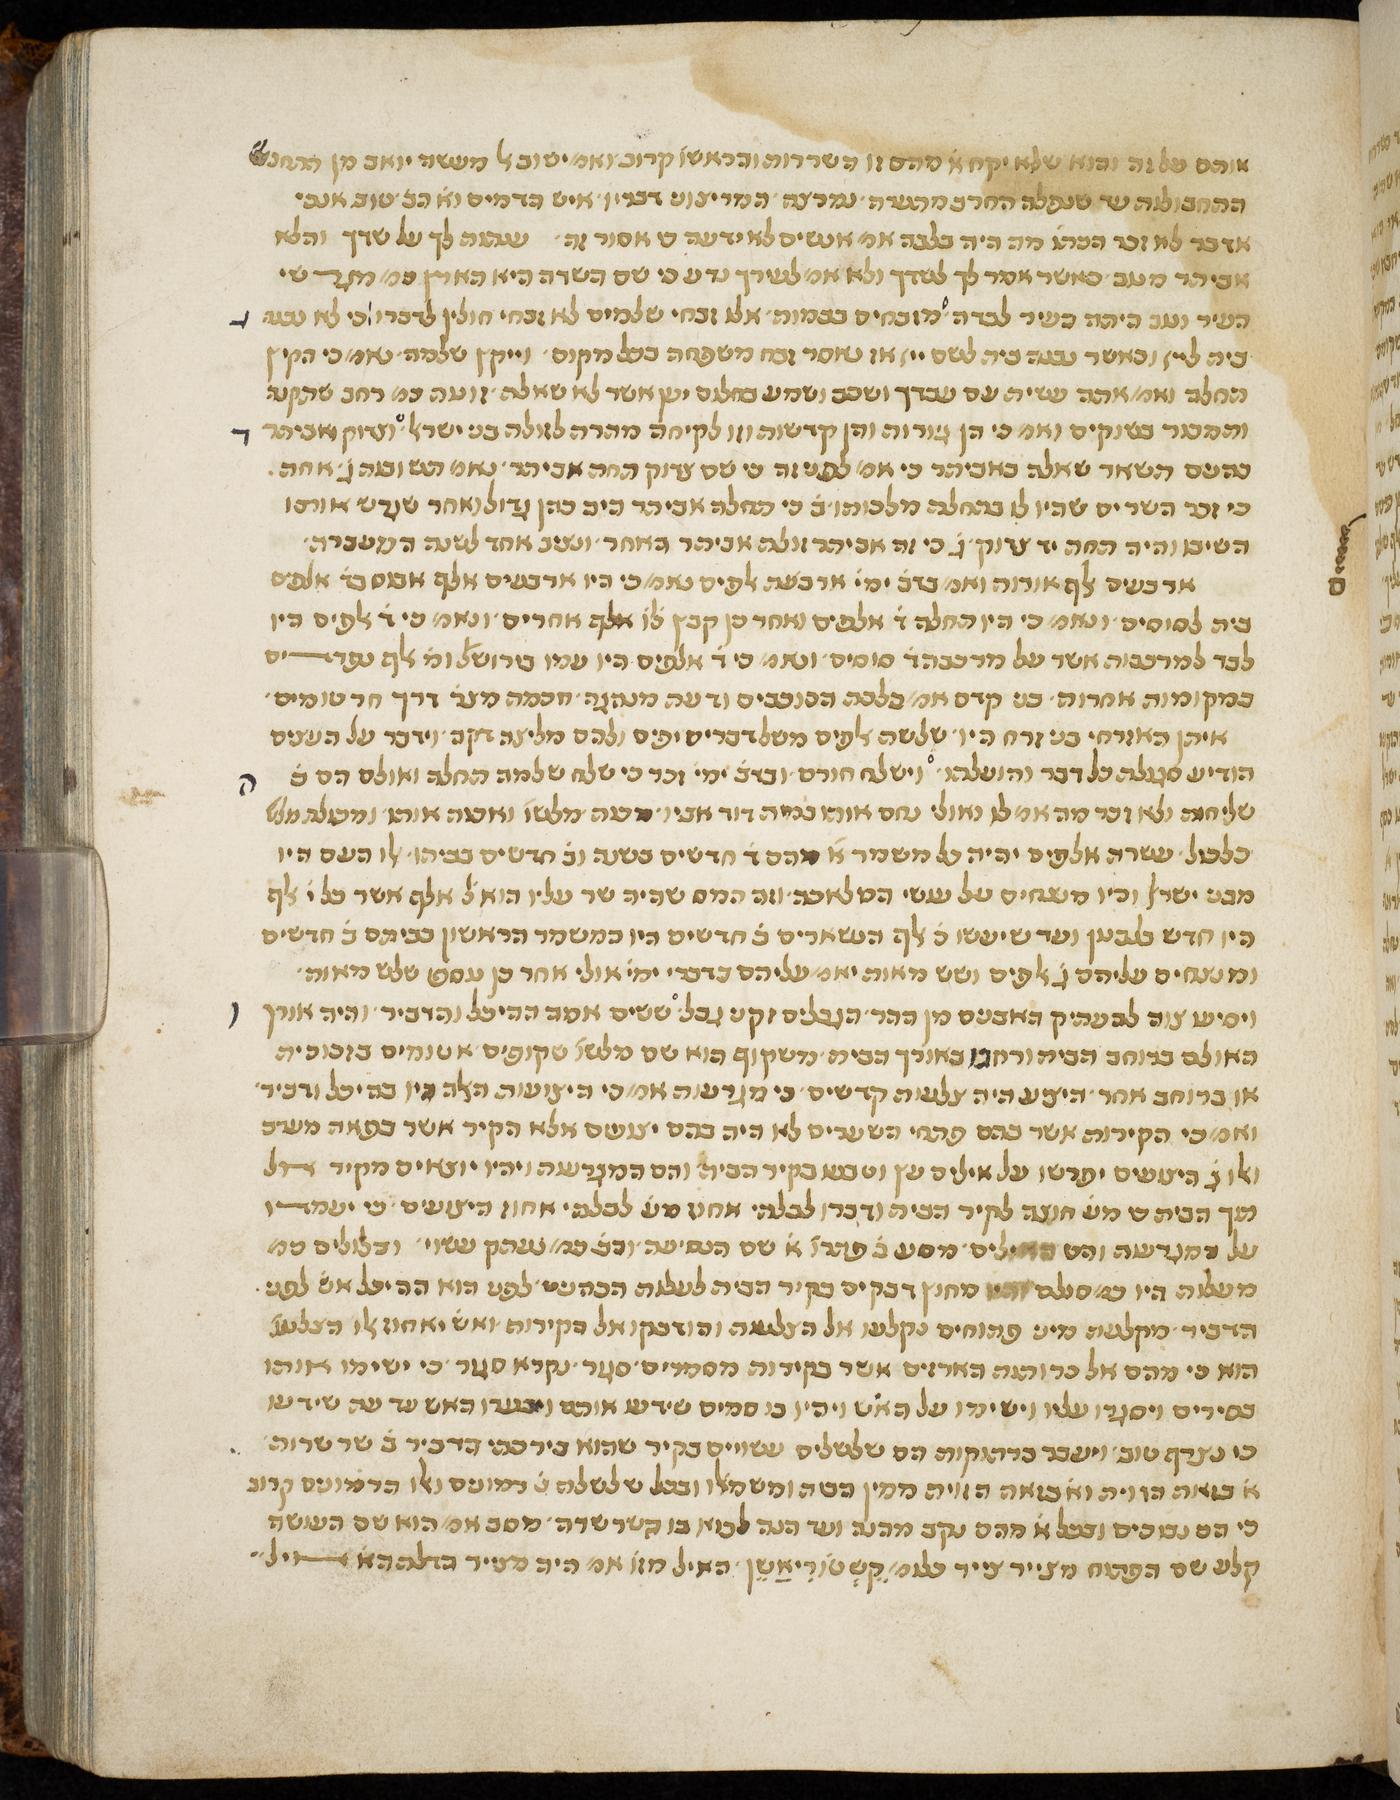 אותם על זה והוא שלא יקח א מהם זו השררות והראשו קרוב ואמ׳ ישוב ל מעשה יואב מן
התחבולות עד שנפלה החרב מתערה נמרצה המר יצוע דבריו איש הדמים וא הב טוב אנכי
אדבר לא זכר הכהן מה היה בלבה אמ׳ אנשים לא ידעה ש אסור זה ענתות לך על שדך והלא
אביתר מנוב כאשר אמר לך לשדך ולא אמ׳ לעירך נדע כי שם השדה היא הארץ כמ׳ מגרשי
העיר ונוב היתה העיר לבדה מזבחים בבמות אלו זבחי שלמים לא זבחי חולין לדברו כי לא נבנה
ג
בית ליי׳ וכאשר נבנה בית לשם ייי אז נאסר זבח משפחה בכל מקום וייקץ שלמה נאמ׳ כי הקיץ
החלב ואמ׳ אתה עשית עם עבדך ושכב ושמע בחלום יען אשר לא שאלת זועה כמ׳ רחב שהקנה
והמבור בענקים ואמ׳ כי הן עורות והן קדשות וזו לקיחה מהרה לזולה בני ישרל וצדוק ואביתר
ד
כהנים השאר שאלה באביתר כי אמ׳ לפני זה כי שם צדוק תחת אביתר נאמ׳ תשובות ג אחת
כי זכר השרים שהיו לו בתחלת מלכותו ב כי תחלה אביתר היה כהן גדול ואחר שגרש אותו
השיבו והיה תחת יד צדוק ג כי זה אביתר זולת אביתר האחר ונציב אחד לשנה המעברת
ארבעים לף אורות ואמ׳ בדב׳ ימי ארבעת לפים נאמ׳ כי היו ארבעים אלף אבוס בד אלפים
בית לסוסים ונאמ׳ כי היו תחלה ד אלפים ואחר כן קבץ לו אלף אחרים ונאמ׳ כי ד לפים היו
לבד למרכבות אשר על מרכבה ד סוסים ונאמ׳ כי ד אלפים היו עמו בירושל ומ לף נפרדים
במקומות אחרות בני קדם אמ׳ בלכת הכוכבים ודעת מנהגה חכמה מצר דרך חרטומים
איתן האזרחי בני זרח היו שלשת לפים משל דברים יפים ולהם מליצה דקה וידבר על העצים
הודיע סגולת כל דבר והועלתו וישלח חורם ובדב ימי זכר כי שלח שלמה תחלה ואולם הם ב
ה
שליחות ולא זכר מה אמ׳ לו נאולי נחם אותו במות דוד אביו מכות מלשו ואכות אותו ומכולת
כלכול עשרת אלפים יהיה כל משמר א מהם ד חדשים בשנה וב חדשים בביתו לו העם היו
מבני ישרל והיו משגחים על עושי המלאכה וזה המס שהיה שר עליו הוא ל אלף אשר כל י לף
היו חדש בלבנון ועד שיעשו כ לף הנשארים ב חדשים היו במשמר הראשון בביתם ב חדשים
ומשגחים עליהם ג לפים ושש מאות יאמ׳ עליהם בדברי ימי אולי אחר כן עסף שלש מאות
ויסיעו צוה להעתיק האבנים מן ההר הגבלים זקני גבל ששים אמה ההיכל והדביר והיה אורך
ו
האולם ברוחב הבית ורחבו באורך הבית משקוף הוא שם מלשו שקופים אטומים בזכוכית
או ברוחב אחר היציע היה צלעות קדשים כי מגרעות אמ׳ כי היציעות הלה היו בהיכל ודביר
ואמ׳ כי הקירות אשר בהם פתחי השערים לא היה בהם יציעים אלא הקיר אשר בפאת מערב
ולו ג היציעים יפרשו על אילים עץ וטבעו בקיר הבית והם המגרעות ויהיו יוצאים מקיר אל
תוך הבית ש מש חוצה לקיר הבית ודברו לבלתי אחוז מש לבלתי אחוז היציעים כי יעמדו
על המגרעות והט האילים מסע ב פתרו א שם הנסיעה והב כמ׳ נעתק עשוי ובלולים כמ׳
מעלות היו כמ׳ סולם והיו מחוץ דבקים בקיר הבית לעלות הכהנים לפני הוא ההיכל אש לפני
הדביר מקלעת מיני פתוחים נקלעו אל הצלעות והודבקו אל הקירות ואש יאחוז לו הצלעו
הוא כי מהם אל כרותות הארזים אשר בקירות מסמרים סגור נקרא סגור כי ישימו אותו
בסירים ויסגרו עליו וישימו על האש ויהיו בו סמים שידעו אותם ויבערו האש עד עת שידעו
כי נצרף טוב ויעבר ברתוקות הם שלשלים עשויים בקיר שהוא בירכתי הדביר ב שרשרות
א בזאת הזוית וא בזאת הזוית ממין הכות ומשמאלו ובכל שלשלת נ רמונים ולו הרמונים קרוב
כי הם נבוכים ובכל א מהם נקב מהנה ועד הנה לבוא בו קשר שרה מסב אמ׳ הוא שם העושה
קלע שם הפתוח מצייר צייר כלומ׳ קַשְטוֹרִיאַשֵן האיל מזו אמ׳ היה מציר בדלת הא איל